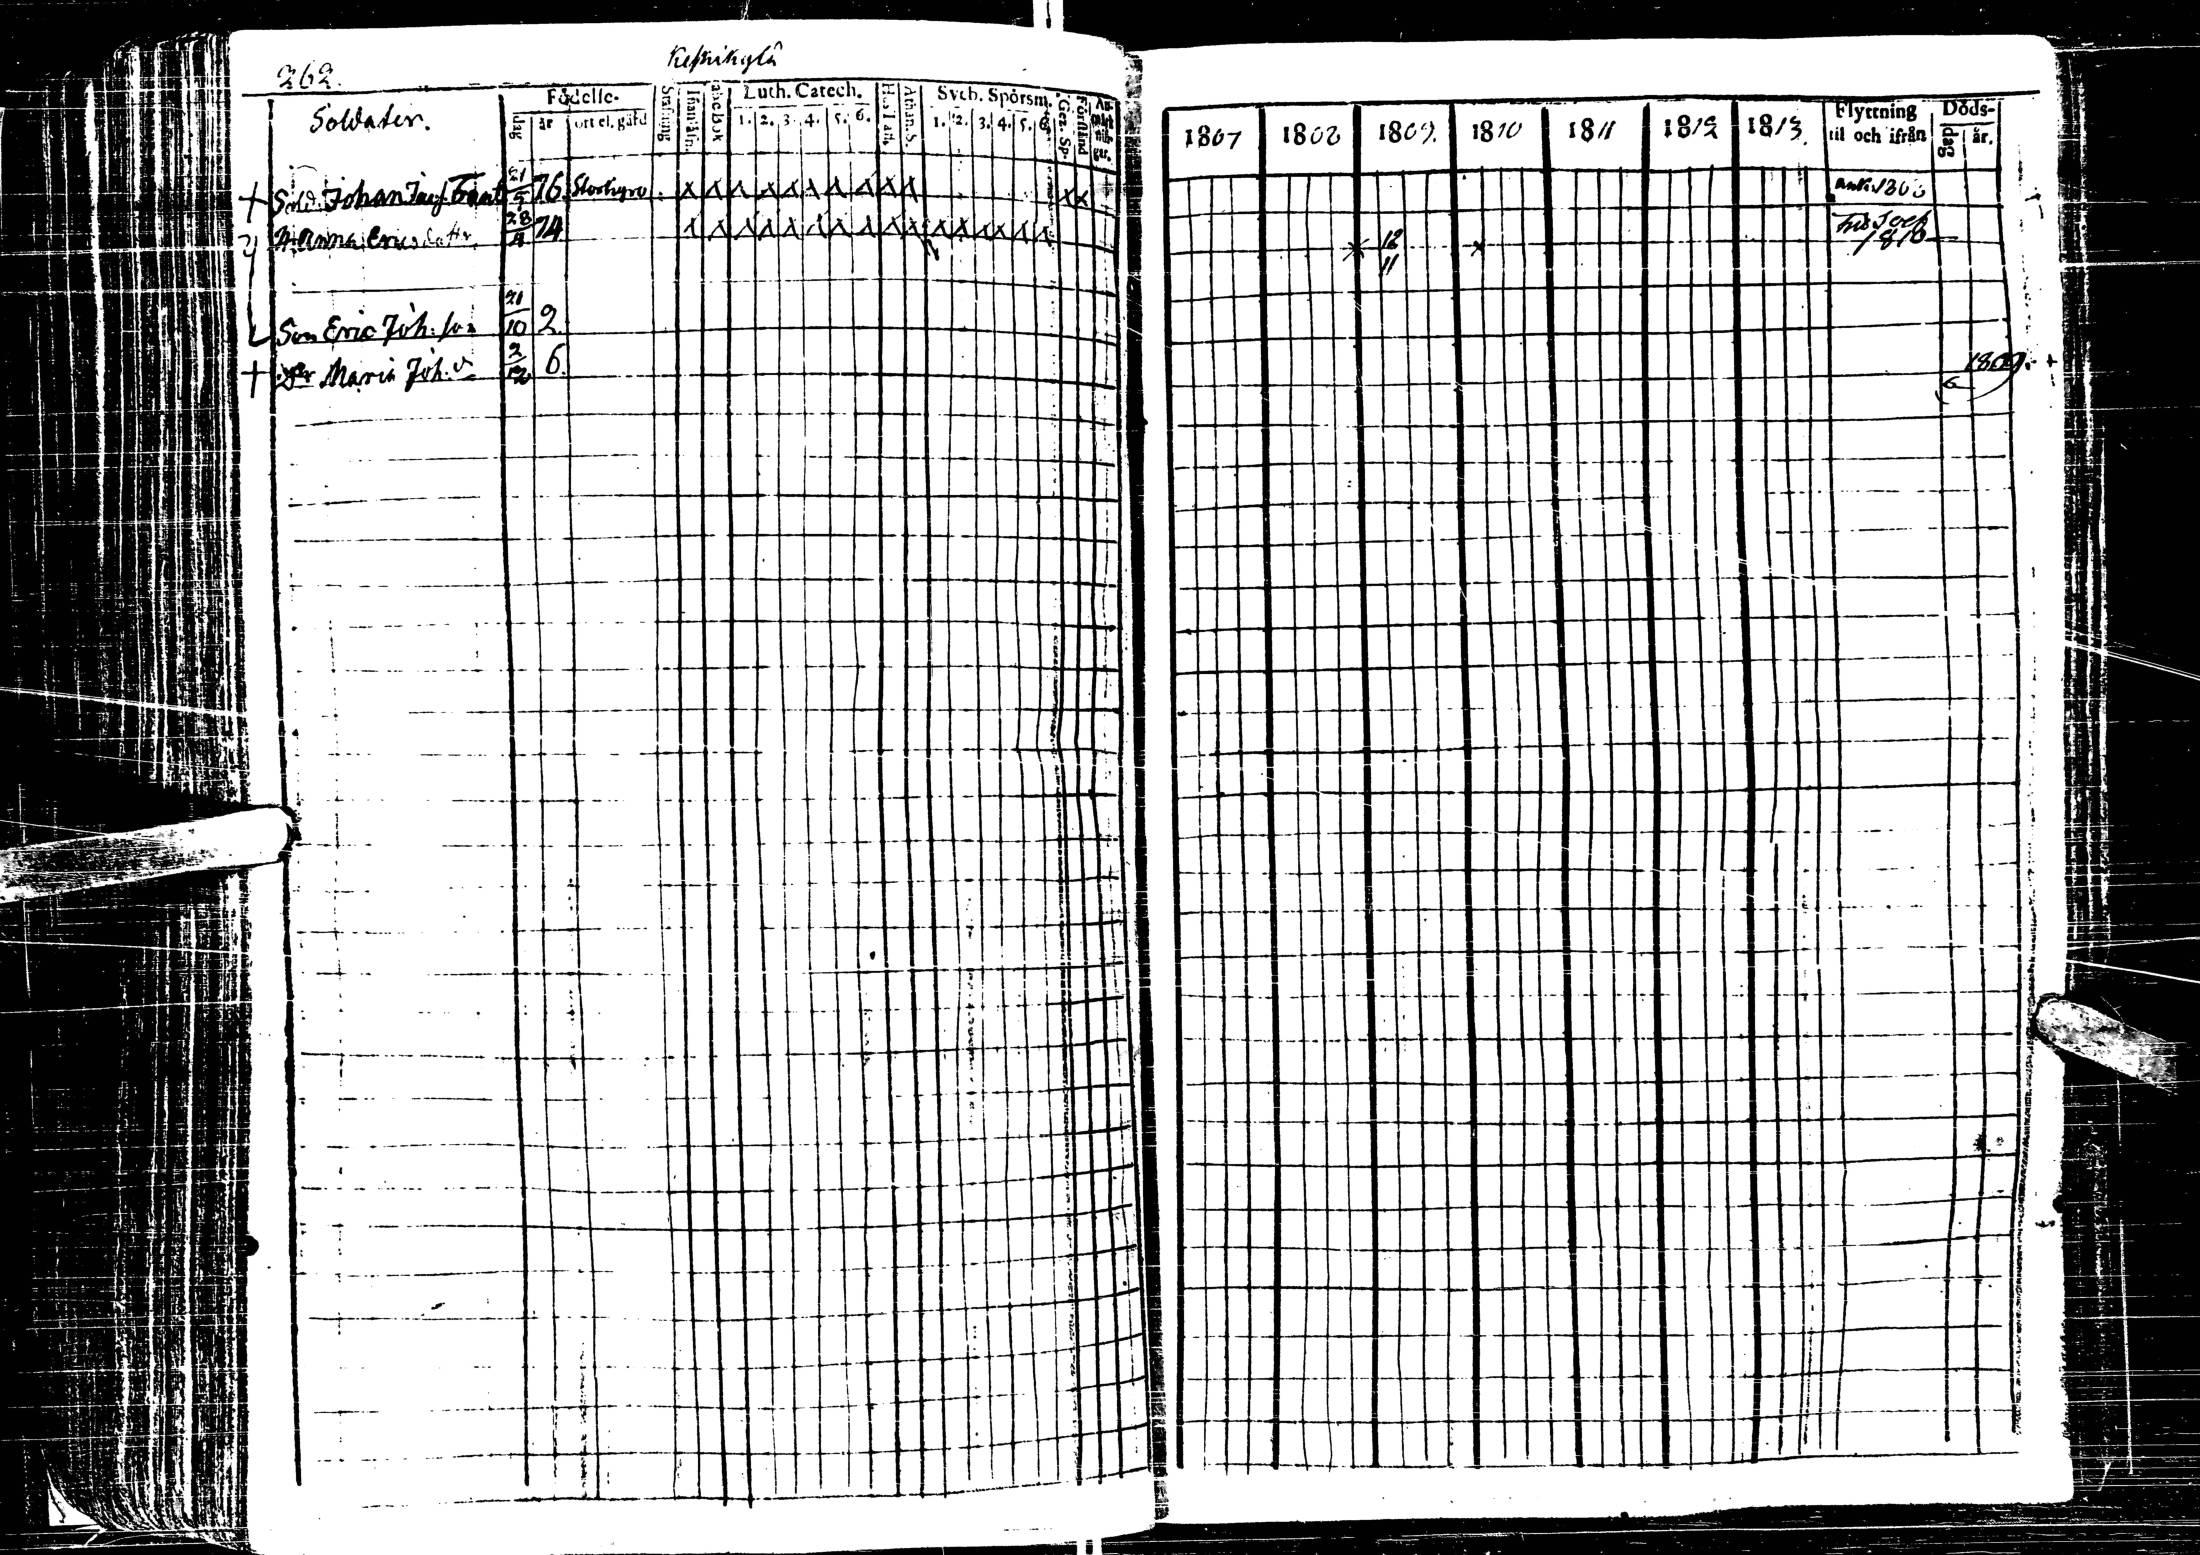 262.
Keskikylä
Soldater.
Födelse-
dag år ort el. gård
Stafning
Innanläs.
abc bok
Luth. Catech.
1. 2. 3. 4. 5. 6.
Hus Tafl.
Athan. S.
Sveb. Spörsm.
1. 2. 3. 4. 5. 6.
Ges. Sp.
Förstånd
An-
märk
nin-
gar.
1807 1808 1809. 1810 1811 1812 1813.
Flyttning
til och ifrån
Döds-
dag år.
Sold. Johan Jacs. 21 76. Storkyro x x x x x x x x x x x x
H. Anna Ericsdotter 28 74 x x x x x x x x x x x x x x x x
x 12 x
11
1810
Son Eric Joh. son 21 10 2.
Dr Maria Joh. d. 2 12 6.
1809. +